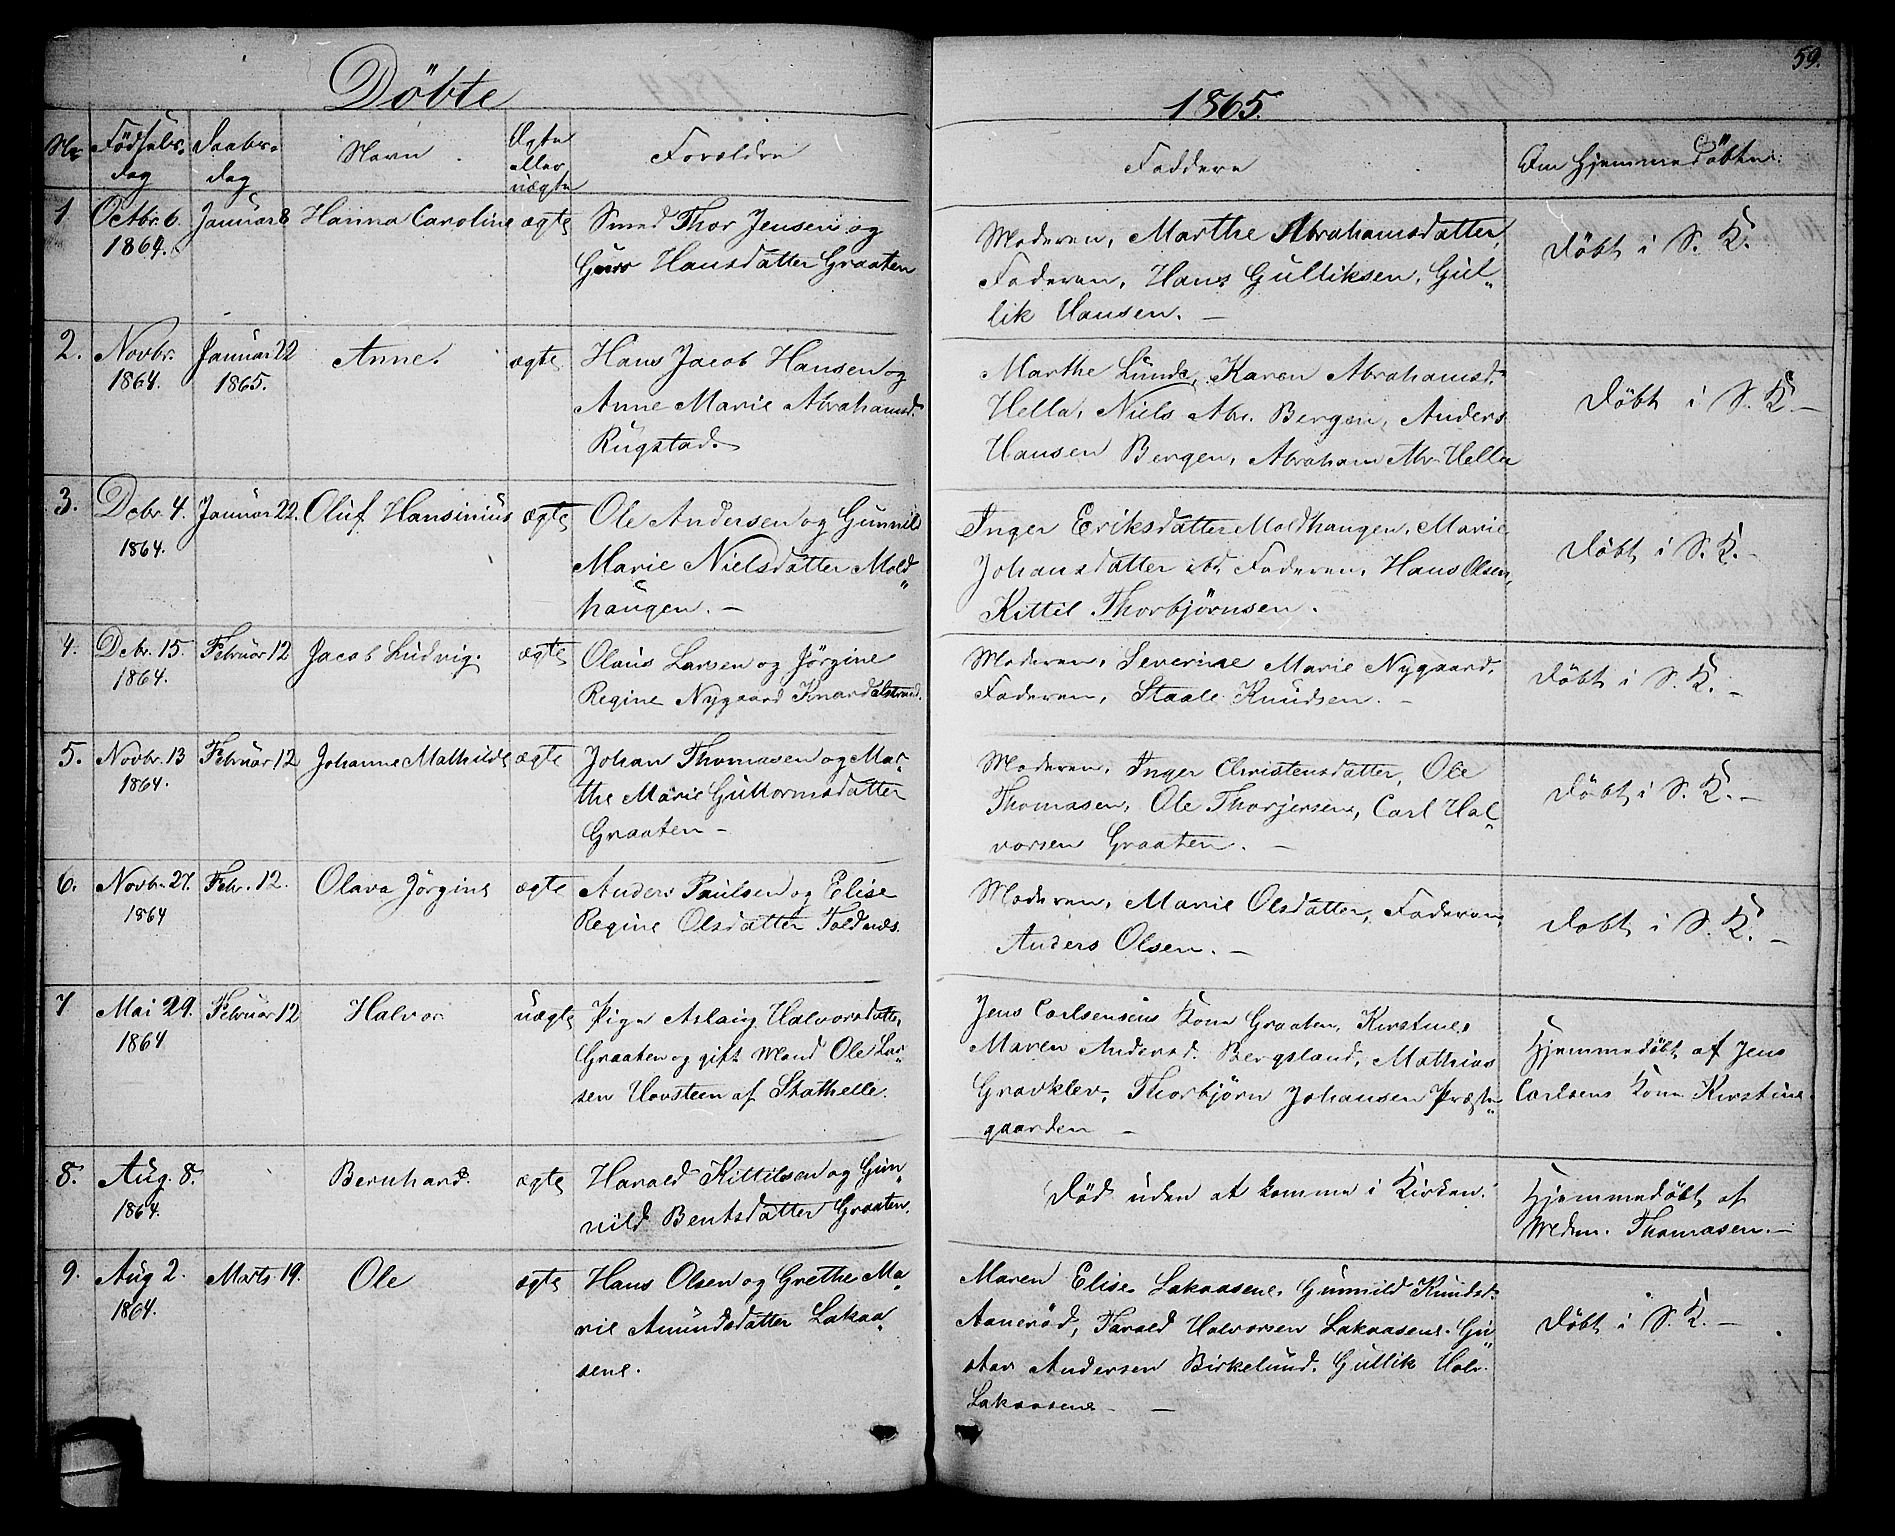 Döbte
1865.
59.
Nr Födselsdag Daabsdag Navn Ægte eller uægte Forældre Faddere Om Hjemmedöbte
1. Octbr. 6. 1864. Januar 8 Hanna Caroline ægte
Smed Thor Jensen og
Hansdatter Graaten
Moderen, Marthe Abrahamsdatter,
Faderen, Hans Gulliksen, Gul„
lik Hansen. —
Döbt i S. K.
2. Novbr. 1864. Januar 22 1865. Anne. ægte
Hans Jacob Hansen og
Anne Marie Abrahamsd.
Rugstad.
Marthe Lunde, Karen Abrahamsd.
Hella, Niels Abr. Bergen, Anders
Hansen Bergen, Abraham Abr. Hella
Döbt i S. K. —
3. Debr. 4. 1864. Januar 22. Oluf Hansinius ægte
Ole Andersen og Gunnild
Marie Nielsdatter Mold„
haugen. —
Inger Eriksdatter Moldhaugen, Marie
Johansdatter ibd. Faderen, Hans Olsen,
Kittil Thorbjörnsen.
Döbt i S. K. —
4. Debr. 15. 1864. Februar 12 Jacob Ludvig. ægte
Olaus Larsen og Jörgine
Regine Nygaard Knardalstrand.
Moderen, Severine Marie Nygaard,
Faderen, Staale Knudsen. —
Döbt i S. K. —
5. Novbr. 13 1864. Februar 12 Johanne Mathilde ægte
Johan Thomasen og Mar„
the Marie Guttormsdatter
Graaten —
Moderen, Inger Christensdatter, Ole
Thomasen, Ole Thorjersens, Carl Hal„
vorsen Graaten. —
Döbt i S. K. —
6. Novbr. 27. 1864 Febr. 12. Olava Jörgine ægte
Anders Paulsen og Elise
Regine Olsdatter Toldnæs.
Moderen, Marie Olsdatter, Faderen,
Anders Olsen. —
Döbt i S. K. —
7 Mai 29. 1864 Februar 12 Halvor uægte
Pige Aslaug Halvorsdatter,
Graaten og gift Mand Ole Lar„
sen Hovsteen af Stathelle.
Jens Carlsens Kone Graaten, Kirstine,
Maren Andersd. Bergsland, Mathias
Gravklev, Thorbjörn Johansen Præste„
gaarden —
Hjemmedöbt af Jens
Carlsens Kone Kirstine.
8. Aug. 8. 1864. Bernhard. ægte
Harald Kittilsen og Gun„
nild Bentsdatter Graaten.
Död uden at komme i Kirken.
Hjemmedöbt af
Thomasen. —
9. Aug 2. 1864. Marts 19. Ole ægte
Hans Olsen og Grethe Ma„
rie Amundsdatter Lakaa„
sene.
Maren Elise Lakaasene, Gunnild Knudsd.
Aaneröd, Tarald Halvorsen Lakaasene. Gu„
stav Andersen Birkelund. Gullik Halv.
Lakaasene —
Döbt i S. K. —